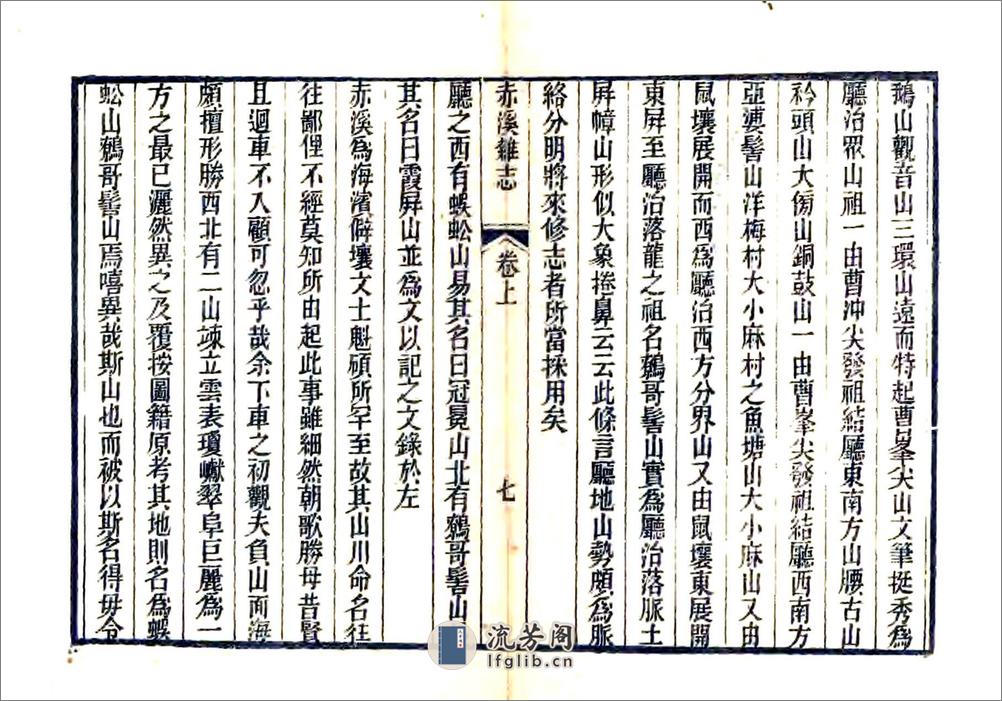 鵝山觀音山三環山遠而特起曹峯尖山文筆挺秀爲
廳治眾山祖一由曹沖尖發祖結廳東南方山腰古山
衿頭山大衞山銅鼓山一由曹峯尖發祖結廳西南方
亞婆髻山洋梅村大小麻村之魚塘山大小麻山又由
鼠壤展開而西爲廳治西方分界山又由鼠壤東展開
東屏至廳治落龍之祖名鷯哥髻山實爲廳治落脈土
屏幛山形似大象捲鼻云云此條言廳地山勢頗爲脈
絡分明將來修志者所當採用矣
赤溪雜志
卷上
七
廳之西有蜈蚣山易其名曰冠冕山北有鷯哥髻山
其名曰霞屏山並爲文以記之文錄於左
赤溪爲海濱僻壤文士魁碩所罕至故其山川命名往
往鄙俚不經莫知所由起此事雖細然朝歌勝母昔賢
且迴車不入顧可忽乎哉余下車之初觀夫負山面海
頗擅形勝西北有二山竦立雲表瓊巘翠阜巨麗爲一
方之最已灑然異之及覆按圖籍原考其地則名爲蜈
蚣山鷯哥髻山焉嘻異哉斯山也而被以斯名得毋令
流芳阁
lfglib.cn